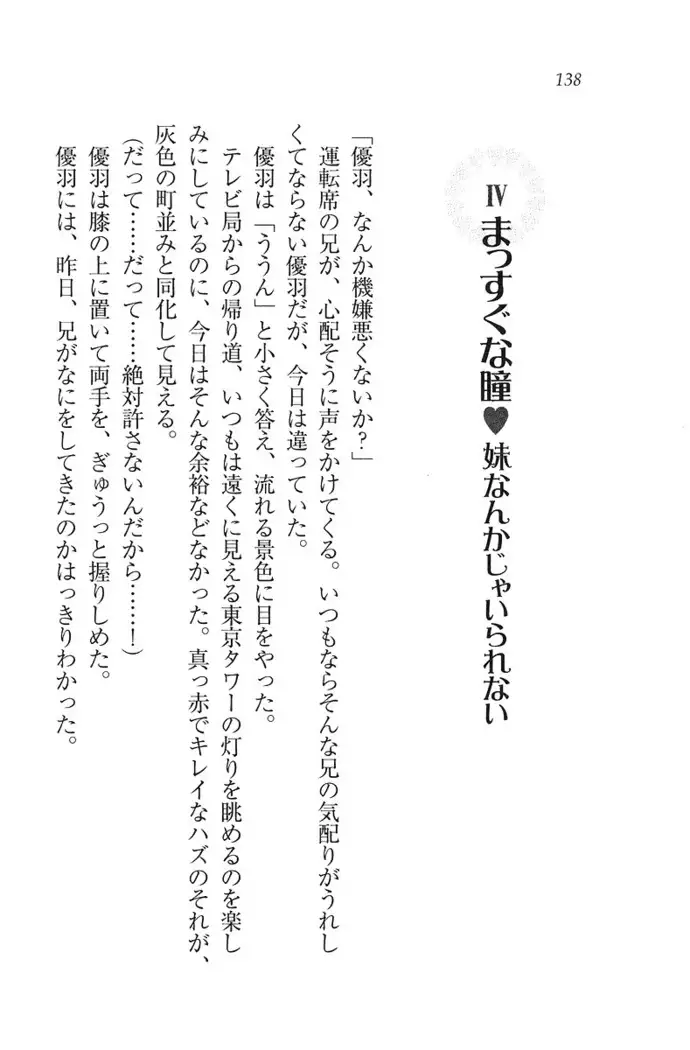 138
IV まっすぐな瞳♥妹なんかじゃいられない
「優羽、なんか機嫌悪くないか？」
　運転席の兄が、心配そうに声をかけてくる。いつもならそんな兄の気配りがうれし
くてならない優羽だが、今日は違っていた。
　優羽は「ううん」と小さく答え、流れる景色に目をやった。
　テレビ局からの帰り道、いつもは遠くに見える東京タワーの灯りを眺めるのを楽し
みにしているのに、今日はそんな余裕などなかった。真っ赤でキレイなハズのそれが、
灰色の町並みと同化して見える。
（だって……だって……絶対許さないんだから……！）
　優羽は膝の上に置いて両手を、ぎゅうっと握りしめた。
　優羽には、昨日、兄がなにをしてきたのかはっきりわかった。